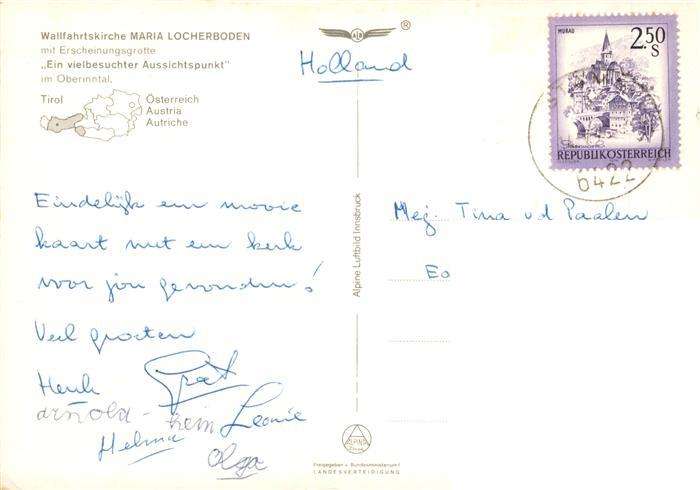 Wallfahrtskirche MARIA LOCHERBODEN
mit Erscheinungsgrotte
„Ein vielbesuchter Aussichtspunkt"
im Oberinntal.
Tirol
Österreich
Austria
Autriche
®
Holland
MURAU
2.50
S
REPUBLIK ÖSTERREICH
6422
Eindelijk een mooie
kaart met een kerk
voor jou gevonden!
Veel groeten
Henk
Arnold - Rein Leonie
Helma
Olga
Alpine Luftbild Innsbruck
Mej. Tina vd Paalen
Eo
ALPINE
Freigegeben v. Bundesministerium f.
LANDESVERTEIDIGUNG